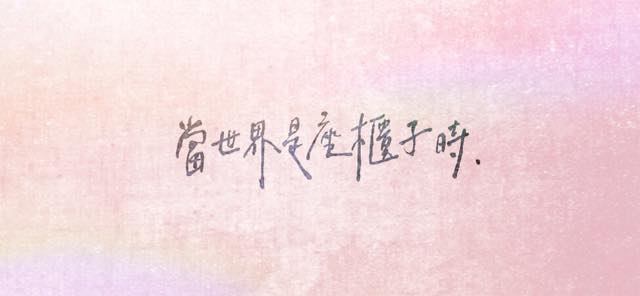 當世界是座櫃子時.